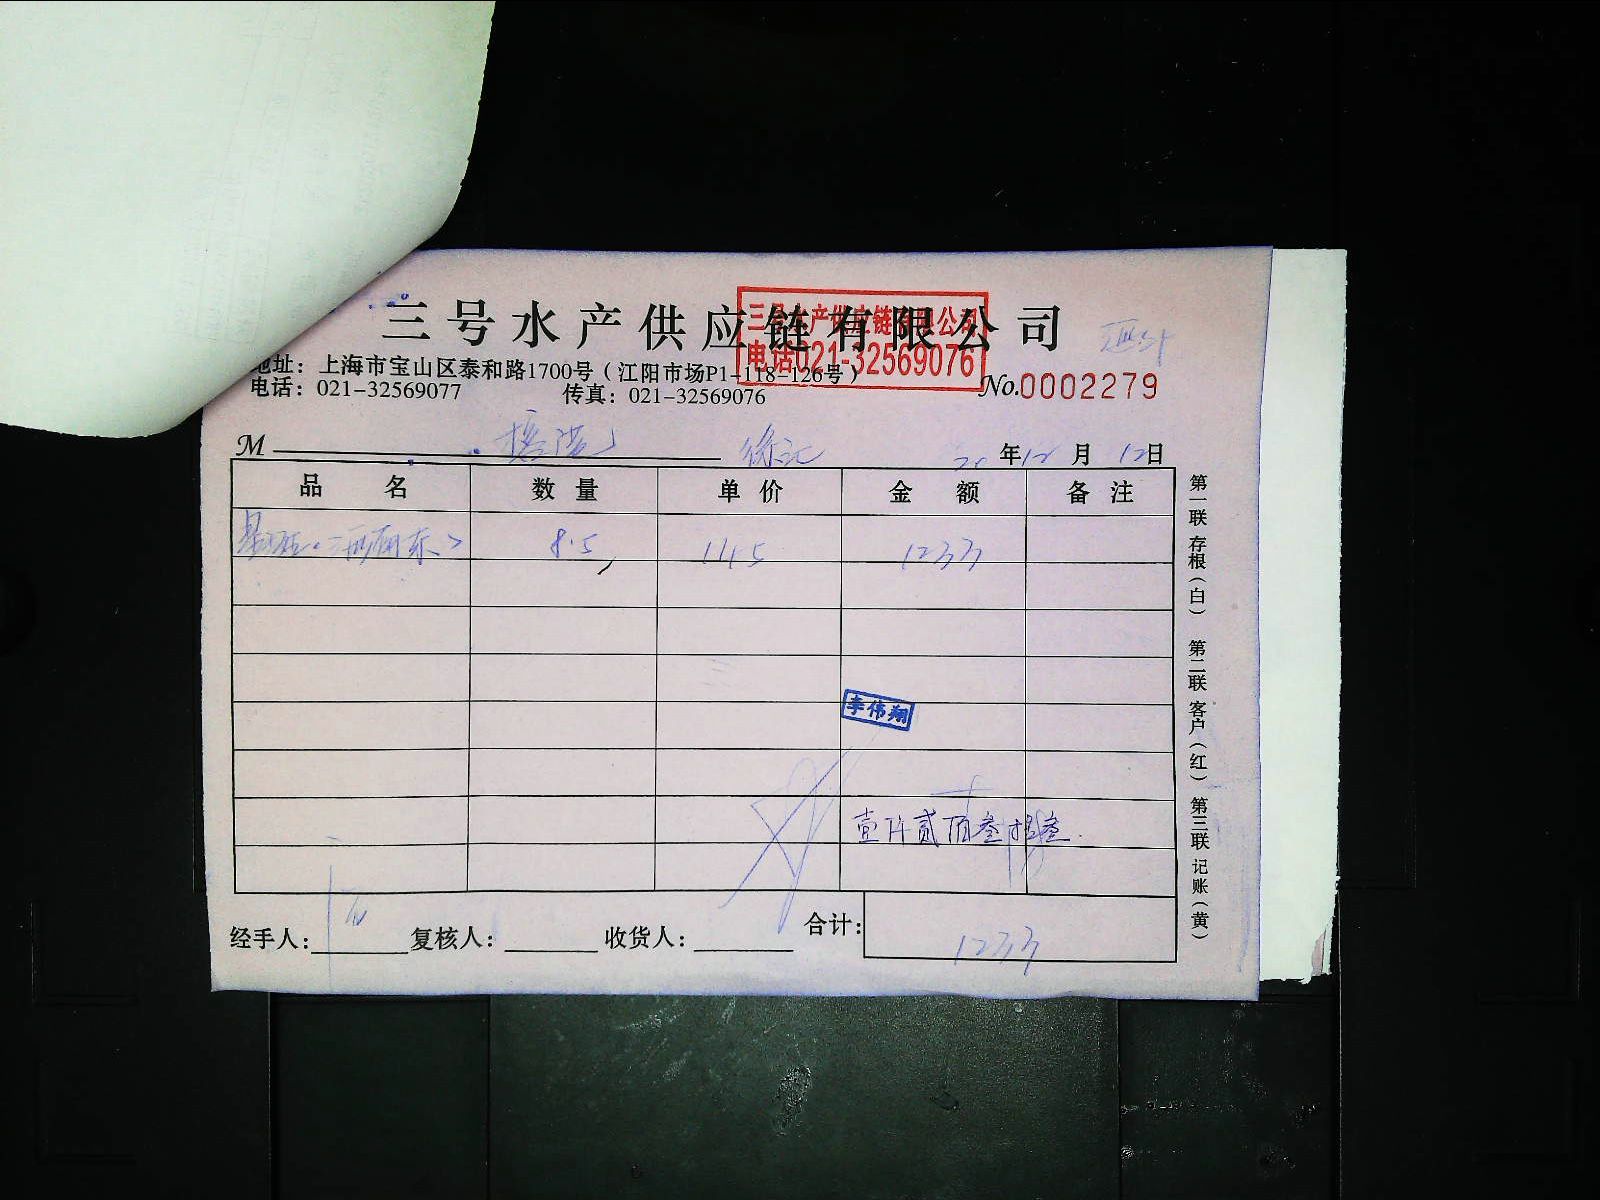 三号水产供应链有限公司
三号水产供应链有限公司
电话021-32569076
地址：上海市宝山区泰和路1700号（江阳市场P1-118-126号）
电话：021-32569077 传真：021-32569076
No.0002279
M 20年12月12日
品名 数量 单价 金额 备注
8.5 145 1233
李伟翔
壹仟贰佰叁拾叁
经手人： 复核人： 收货人： 合计： 1233
第一联 存根（白） 第二联 客户（红） 第三联 记账（黄）